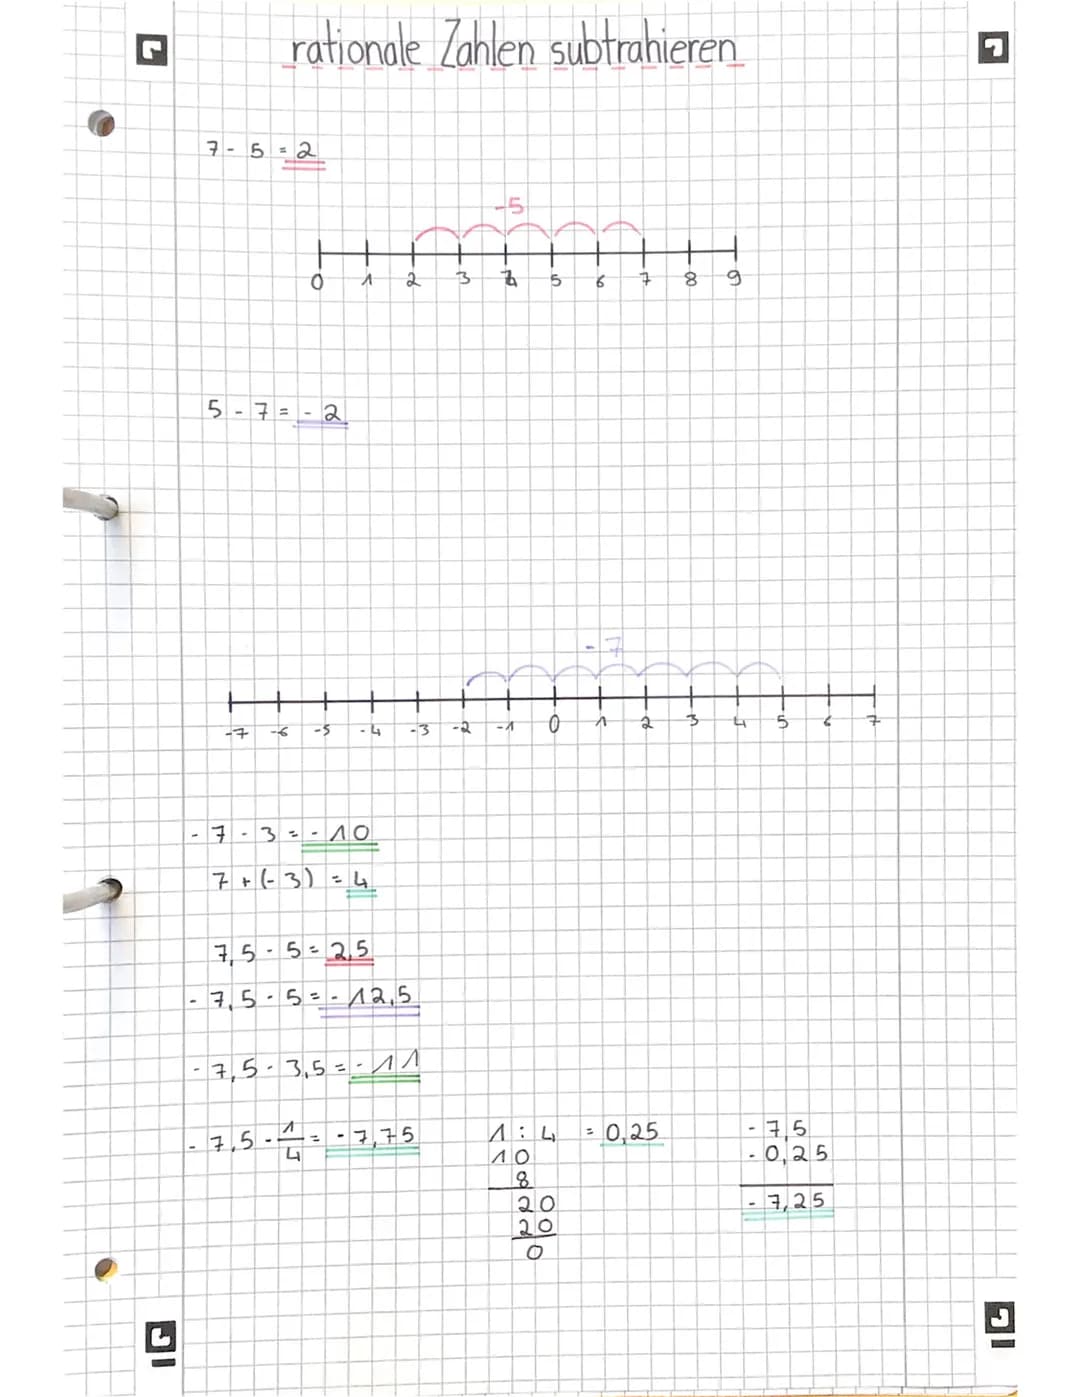 rationale Zahlen subtrahieren
7 - 5 = 2
-5
0 1 2 3 4 5 6 7 8 9
5 - 7 = - 2
- 7
-7 -6 -5 -4 -3 -2 -1 0 1 2 3 4 5 6 7
- 7 - 3 = - 10
7 + (- 3) = 4
7,5 - 5 = 2,5
- 7,5 - 5 = - 12,5
- 7,5 - 3,5 = - 11
- 7,5 - 1/4 = - 7,75
1 : 4 = 0,25
10
8
20
20
0
- 7,5
- 0,25
- 7,25